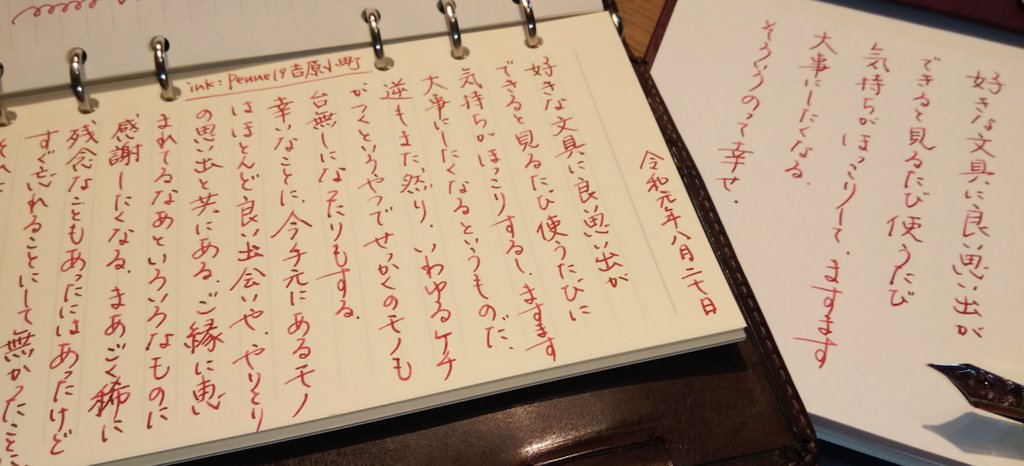 ink: Penne19 吉原小町
令和元年八月二十日
好きな文具に良い思い出が
できると見るたび使うたびに
気持ちがほっこりするし、ますます
大事にしたくなるというものだ、
逆もまた然り、いわゆるケチ
がつくというやつでせっかくのモノも
台無しになったりもする。
幸いなことに、今手元にあるモノ
はほとんど良い出会いや、やりとり
の思い出と共にある。ご縁に恵
まれてるなあといろいろなものに
感謝したくなる。まあごく稀に
残念なこともあったにはあったけど
すぐ忘れることにして無かったこと
好きな文具に良い思い出が
できると見るたび使うたび
気持ちがほっこりして、ますます
大事にしたくなる。
そういうのって幸せ。